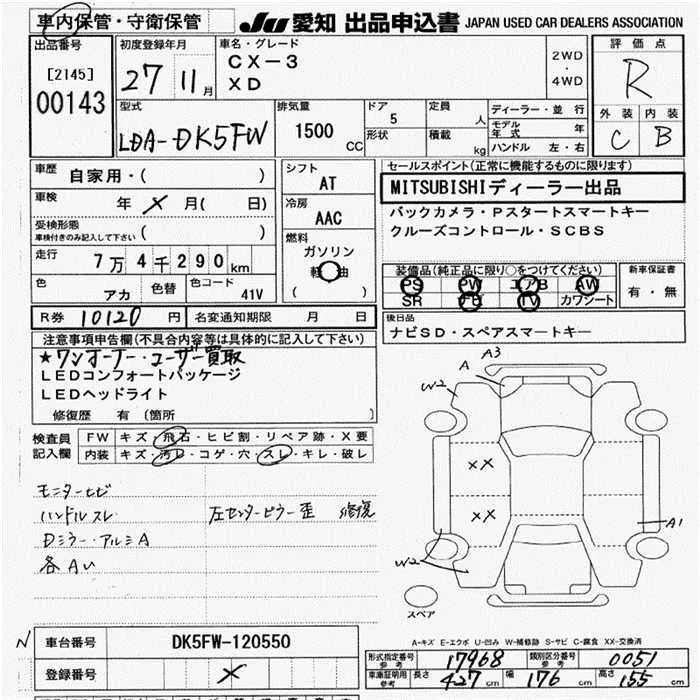 車内保管・守衛保管
JU 愛知 出品申込書 JAPAN USED CAR DEALERS ASSOCIATION
出品番号
[2145]
00143
初度登録年月
27 11月
車名・グレード
CX-3
XD
2WD
・
4WD
評価点
R
外装 内装
C B
型式
LDA-DK5FW
排気量
1500 CC
ドア
5
形状
定員
人
積載
kg
ディーラー・並行
モデル年式 年
ハンドル 左・右
車歴
自家用・( )
車検
年 × 月( 日)
受検形態
車検付きのみ記入して下さい ( )
走行
7万4千290km
色
アカ
色替
色コード
41V
シフト
AT
冷房
AAC
燃料
ガソリン
軽油
( )
セールスポイント(正常に機能するものに限ります)
MITSUBISHIディーラー出品
バックカメラ・Pスタートスマートキー
クルーズコントロール・SCBS
装備品(純正品に限り○をつけてください)
PS PW エアB AW
SR ナビ TV カワシート
新車保証書
有・無
R券 10120 円
名変通知期限 月 日
後日品
ナビSD・スペアスマートキー
注意事項申告欄(不具合内容等は具体的に記入して下さい)
★ワンオーナー・ユーザー買取
LEDコンフォートパッケージ
LEDヘッドライト
修復歴 有 [箇所 ]
検査員記入欄
FW キズ・飛石・ヒビ割・リペア跡・X要
内装 キズ・汚レ・コゲ・穴・スレ・キレ・破レ
モニターヒビ
ハンドルスレ
左センターピラー歪 修復
Dミラー・アルミA
各Aい
A3
A
W2
XX
XX
A1
W2
スペア
A-キズ E-エクボ U-凹み W-補修跡 S-サビ C-腐食 XX-交換済
N
車台番号
DK5FW-120550
登録番号
×
形式指定番号
参考
17968
類別区分番号
参考
0051
車庫証明用
参考
長さ 427 cm
幅 176 cm
高さ 155 cm